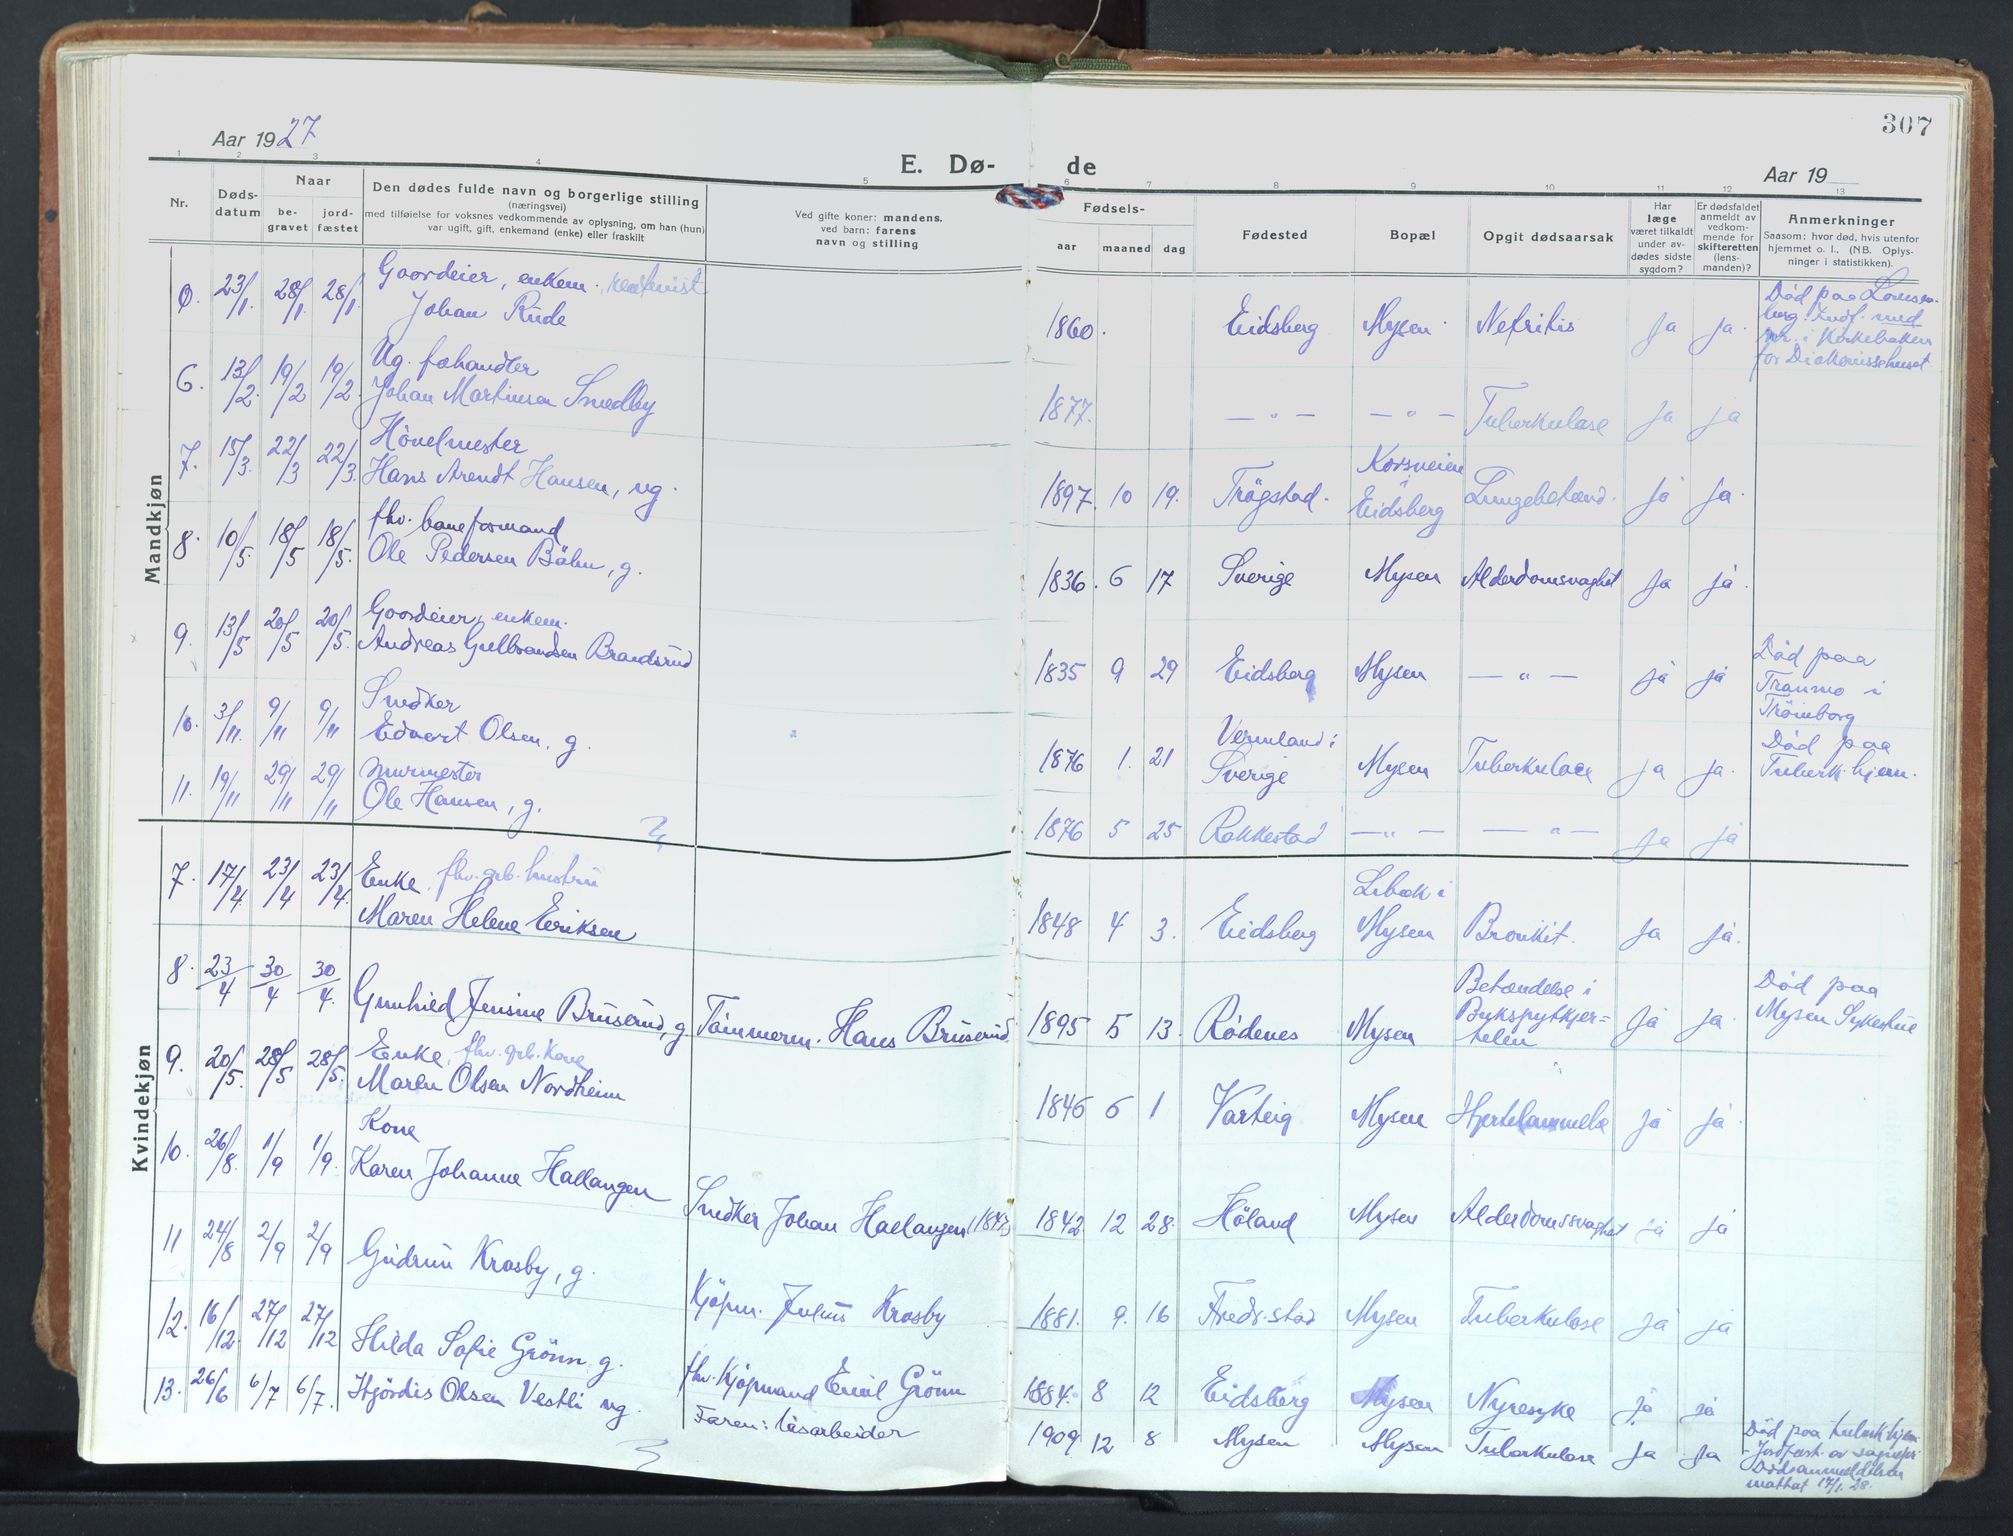 307
Aar 1927
E. Dø- de
Aar 19
1 2 3 4 5 6 7 8 9 10 11 12 13
Nr.
Døds-
datum
Naar
be-
gravet
jord-
fæstet
Den dødes fulde navn og borgerlige stilling
(næringsvei)
med tilføielse for voksnes vedkommende av oplysning, om han (hun)
var ugift, gift, enkemand (enke) eller fraskilt
Ved gifte koner: mandens,
ved barn: farens
navn og stilling
Fødsels-
aar maaned dag
Fødested
Bopæl
Opgit dødsaarsak
Har
læge
været tilkaldt
under av-
dødes sidste
sygdom?
Er dødsfaldet
anmeldt av
vedkom-
mende for
skifteretten
(lens-
manden)?
Anmerkninger
Saasom: hvor død, hvis utenfor
hjemmet o. l., (NB. Oplys-
ninger i statistikken).
Mandkjøn
23/1. 28/1. 28/1 Gaardeier, enkem.
Johan Rude
1860. Eidsberg Mysen Nefritis ja ja.
Død paa
for Diakonissehuset
6. 13/2. 19/2 19/2. Ug. fæhandler
Johan Martinsen Smedby
1877. — " — — " — Tuberkulose ja ja
7. 15/3. 22/3 22/3. Hövelmester
Hans Arendt Hansen, ug.
1897. 10 19. Trögstad. Korsveien
i
Eidsberg Lungebetænd. ja ja.
8. 10/5. 18/5 18/5. fhv. baneformand
Ole Pedersen Böhn, g.
1836. 6 17 Sverige Mysen Alderdomsvaghet ja ja.
9. 13/5 20/5 20/5. Gaardeier, enkem.
Andreas Gulbrandsen Brandsrud
1835 9 29 Eidsberg Mysen — " — ja ja
Död paa
Tranmo i
Trömborg
10. 3/11. 9/11 9/11 Snedker
Edvart Olsen, g.
1876 1. 21 Vermland i
Sverige Mysen Tuberkulose ja ja.
Död paa
Tuberk.hjem.
11. 19/11 29/11 29/11 Murmester
Ole Hansen, g.
1876 5 25 Rakkestad — " — — " — ja ja
Kvindekjøn
7. 17/4. 23/4 23/4. Enke, fhv. grb. hustru
Maren Helene Eriksen
1848 4 3. Eidsberg Libæk i
Mysen Bronkit. ja ja.
8. 23/4 30/4 30/4. Gunhild Jensine Bruserud, g. Tömmerm. Hans Bruserud
1895 5 13. Rödenes Mysen Betændelse i
Bukspytkjer=
telen ja ja.
Död paa
Mysen Sykestue
9. 20/5. 28/5 28/5. Enke, fhv. grb. Kone
Maren Olsen Nordheim
1846 6 1 Varteig Mysen Hjertelammelse ja ja.
10. 26/8. 1/9 1/9. Kone
Karen Johanne Hallangen Snedker Johan Hallangen
1842 12 28. Höland Mysen Alderdomssvaghet ja ja
11 24/8 2/9 2/9 Gudrun Krosby, g. Kjöpm. Julius Krosby
1881. 9. 16 Fredr.stad Mysen Tuberkulose ja ja
12. 16/12. 27/12 27/12 Hilda Sofie Grönn g. fhv. Kjöpmand Emil Grönn
1884. 8 12 Eidsberg Mysen Nyresyke ja ja
13. 26/6 6/7 6/7. Hjördis Olsen Vestli ug. Faren: løsarbeider
1909 12 8 Mysen Mysen Tuberkulose ja ja
Död paa tuberk.hjem
Jordfæst. av sognepr.
Dödsanmeldelsen
mottat 17/1. 28.